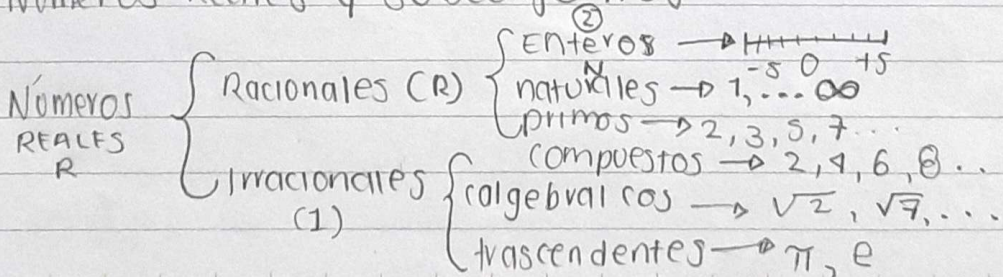 Números REALES R
Racionales (R)
② Enteros → -5 0 +5
N naturales → 1, ... ∞
primos → 2, 3, 5, 7...
compuestos → 2, 4, 6, 8..
Irracionales (I)
(algebraicos → √2, √7, ...
trascendentes → π, e